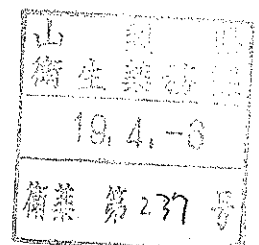 山梨県
衛生薬務課
19.4.-6
衛薬 第237号